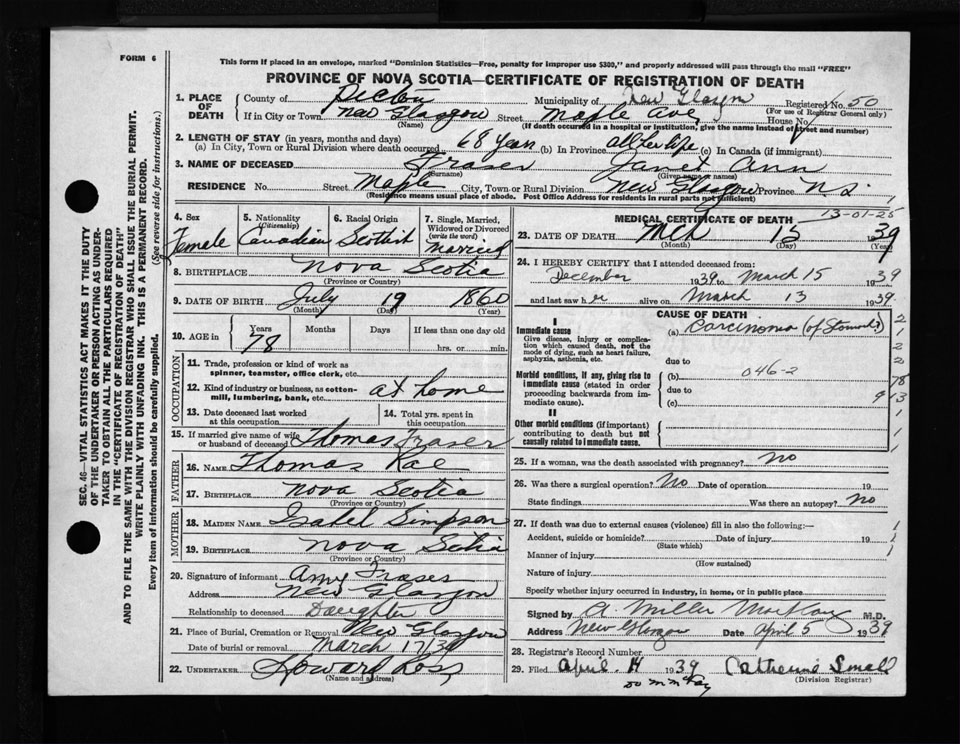 FORM 6
This form if placed in an envelope, marked "Dominion Statistics—Free, penalty for improper use $300," and properly addressed will pass through the mail "FREE"
PROVINCE OF NOVA SCOTIA—CERTIFICATE OF REGISTRATION OF DEATH
1. PLACE OF DEATH County of Pictou Municipality of New Glasgow Registered No. 50
(For use of Registrar General only)
If in City or Town New Glasgow Street Maple Ave, House No.
(Name) (If death occurred in a hospital or institution, give the name instead of street and number)
2. LENGTH OF STAY (in years, months and days)
(a) In City, Town or Rural Division where death occurred 68 years (b) In Province all her life (c) In Canada (if immigrant)
3. NAME OF DECEASED Fraser Janet Ann
(Surname) (Given name or names)
RESIDENCE No. Street Maple City, Town or Rural Division New Glasgow Province N.S.
(Residence means usual place of abode. Post Office Address for residents in rural parts not sufficient)
4. Sex Female
5. Nationality (Citizenship) Canadian
6. Racial Origin Scottish
7. Single, Married, Widowed or Divorced (write the word) Married
8. BIRTHPLACE Nova Scotia
(Province or Country)
9. DATE OF BIRTH July 19 1860
(Month) (Day) (Year)
10. AGE in Years 78 Months Days If less than one day old hrs. or min.
OCCUPATION
11. Trade, profession or kind of work as spinner, teamster, office clerk, etc.
12. Kind of industry or business, as cotton-mill, lumbering, bank, etc. at home
13. Date deceased last worked at this occupation
14. Total yrs. spent in this occupation
15. If married give name of wife or husband of deceased Thomas Fraser
FATHER
16. NAME Thomas Rae
17. BIRTHPLACE Nova Scotia
(Province or Country)
MOTHER
18. MAIDEN NAME Isabel Simpson
19. BIRTHPLACE Nova Scotia
(Province or Country)
20. Signature of informant Amy Fraser
Address New Glasgow
Relationship to deceased Daughter
21. Place of Burial, Cremation or Removal New Glasgow
Date of burial or removal March 17/39
22. UNDERTAKER Howard Ross
(Name and address)
MEDICAL CERTIFICATE OF DEATH
13-01-25
23. DATE OF DEATH Mch 15 1939
(Month) (Day) (Year)
24. I HEREBY CERTIFY that I attended deceased from:
December 1939 to March 15 1939
and last saw her alive on March 13 1939.
CAUSE OF DEATH
I
Immediate cause
Give disease, injury or complication which caused death, not the mode of dying, such as heart failure, asphyxia, asthenia, etc.
(a) Carcinoma (of Stomach?)
due to
Morbid conditions, if any, giving rise to immediate cause (stated in order proceeding backwards from immediate cause).
(b) 046-2
due to
(c)
II
Other morbid conditions (if important) contributing to death but not causally related to immediate cause.
2
1
2
2
78
9 13
1
1
1
25. If a woman, was the death associated with pregnancy? No
26. Was there a surgical operation? No Date of operation 19
State findings Was there an autopsy? No
27. If death was due to external causes (violence) fill in also the following:—
Accident, suicide or homicide? Date of injury 19
(State which)
Manner of injury
(How sustained)
Nature of injury
Specify whether injury occurred in industry, in home, or in public place
Signed by A. Miller MacKay M.D.
Address New Glasgow Date April 5 1939
28. Registrar's Record Number
29. Filed April 14 1939 Catherine Small
(Division Registrar)
SEC. 46—VITAL STATISTICS ACT MAKES IT THE DUTY
OF THE UNDERTAKER OR PERSON ACTING AS UNDER-
TAKER TO OBTAIN ALL THE PARTICULARS REQUIRED
IN THE "CERTIFICATE OF REGISTRATION OF DEATH"
AND TO FILE THE SAME WITH THE DIVISION REGISTRAR WHO SHALL ISSUE THE BURIAL PERMIT.
WRITE PLAINLY WITH UNFADING INK. THIS IS A PERMANENT RECORD.
Every item of information should be carefully supplied. (See reverse side for instructions.)